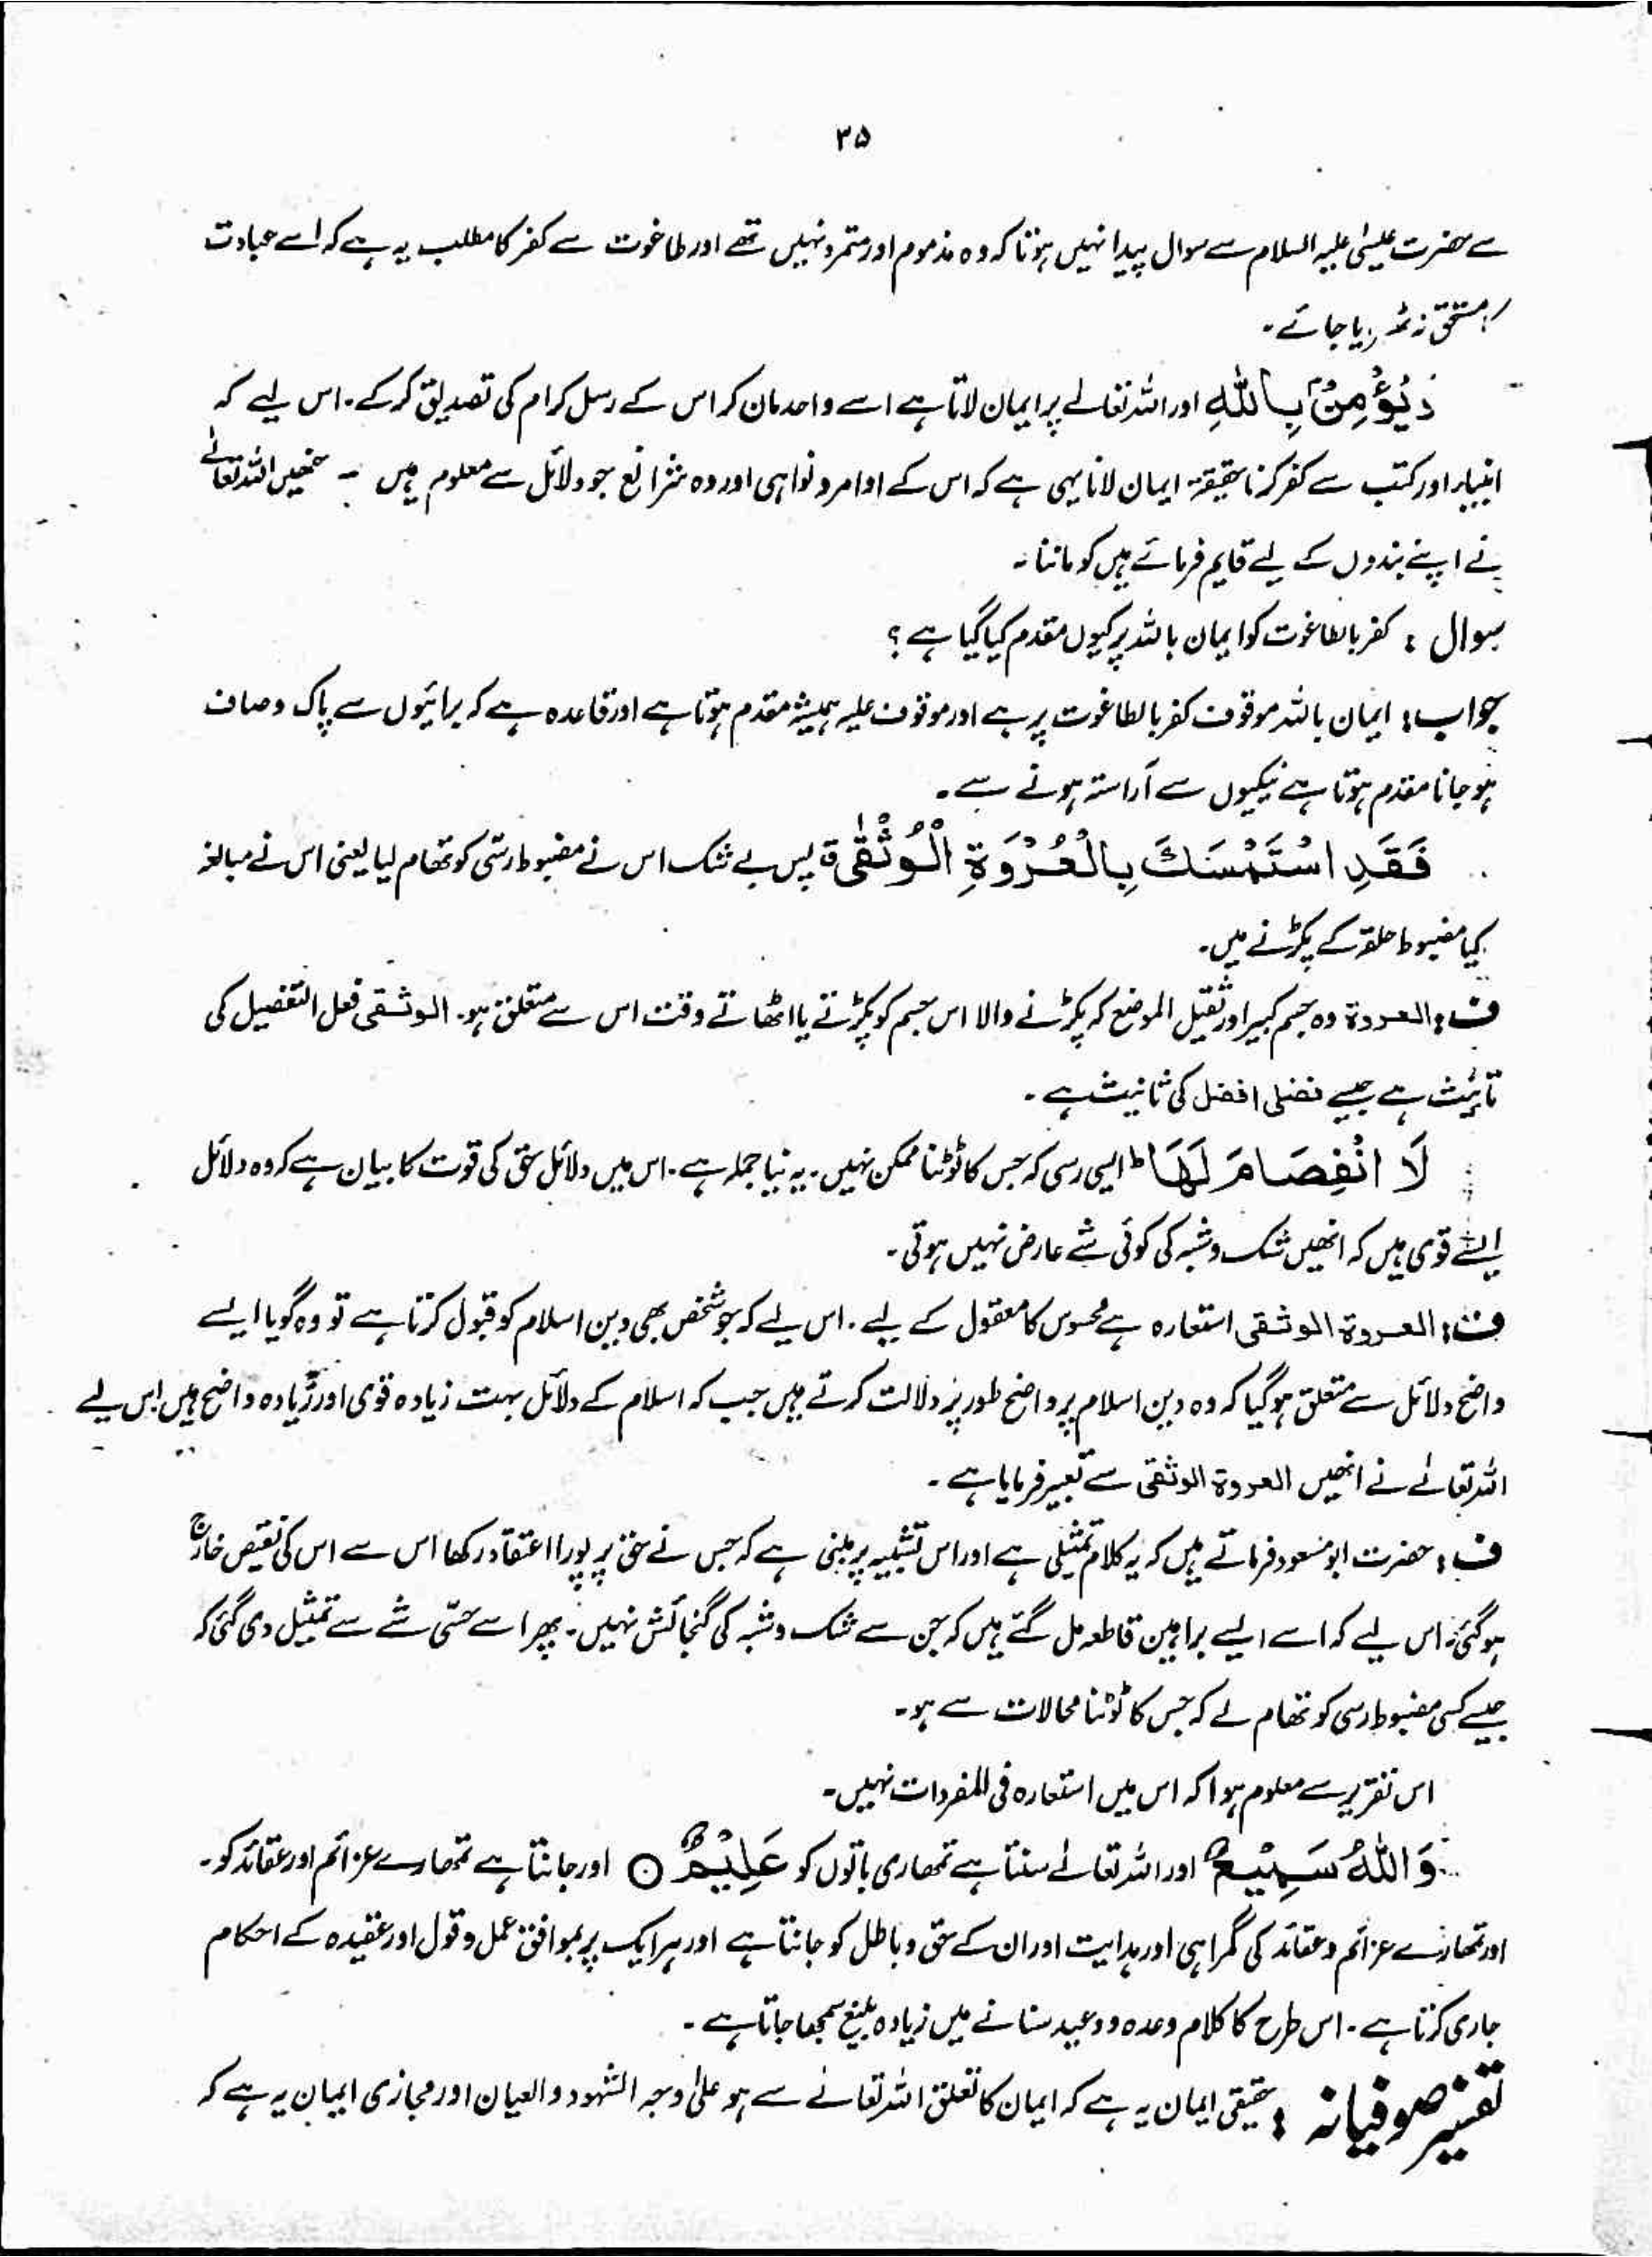 ۳۵
سے حضرت عیسیٰ علیہ السلام سے سوال پیدا نہیں ہوتا کہ وہ مذموم اور متمرد نہیں تھے اور طاغوت سے کفر کا مطلب یہ ہے کہ اسے عبادت
مستحق نہ ٹھہرایا جائے۔
وَيُؤْمِنْۢ بِاللّٰهِ اور اللہ تعالےٰ پر ایمان لاتا ہے اسے واحد مان کر اس کے رسل کرام کی تصدیق کرکے۔ اس لیے کہ
انبیاء اور کتب سے کفر کرنا حقیقۃً ایمان لانا یہی ہے کہ اس کے اوامر و نواہی اور وہ شرائع جو دلائل سے معلوم ہیں ۔ جنھیں اللہ تعالےٰ
نے اپنے بندوں کے لیے قایم فرمائے ہیں کو ماننا۔
سوال : کفر بالطاغوت کو ایمان باللہ پر کیوں مقدم کیا گیا ہے ؟
جواب : ایمان باللہ موقوف کفر بالطاغوت پر ہے اور موقوف علیہ ہمیشہ مقدم ہوتا ہے اور قاعدہ ہے کہ برائیوں سے پاک و صاف
ہو جانا مقدم ہوتا ہے نیکیوں سے آراستہ ہونے سے۔
فَقَدِ اسْتَمْسَكَ بِالْعُرْوَةِ الْوُثْقٰى ق پس بے شک اس نے مضبوط رسّی کو تھام لیا یعنی اس نے مبالغہ
کیا مضبوط حلقہ کے پکڑنے میں۔
ف : العروۃ وہ جسم کبیر اور ثقیل الموضع کہ پکڑنے والا اس جسم کو پکڑتے یا اٹھاتے وقت اس سے متعلق ہو۔ الوثقی فعل التفضیل کی
تانیث ہے جیسے فضلی افضل کی تانیث ہے۔
لَا انْفِصَامَ لَهَا ط ایسی رسی کہ جس کا ٹوٹنا ممکن نہیں۔ یہ نیا جملہ ہے۔ اس میں دلائل حق کی قوت کا بیان ہے کہ وہ دلائل
ایسے قوی ہیں کہ انھیں شک و شبہ کی کوئی شے عارض نہیں ہوتی۔
ف : العروۃ الوثقی استعارہ ہے محسوس کا معقول کے لیے۔ اس لیے کہ جو شخص بھی دین اسلام کو قبول کرتا ہے تو وہ گویا ایسے
واضح دلائل سے متعلق ہو گیا کہ وہ دین اسلام پر واضح طور پر دلالت کرتے ہیں جب کہ اسلام کے دلائل بہت زیادہ قوی اور زیادہ واضح ہیں اس لیے
اللہ تعالےٰ نے انھیں العروۃ الوثقی سے تعبیر فرمایا ہے۔
ف : حضرت ابو مسعود فرماتے ہیں کہ یہ کلام تمثیلی ہے اور اس تشبیہ پر مبنی ہے کہ جس نے حق پر پورا اعتقاد رکھا اس سے اس کی نقیض خارج
ہو گئی۔ اس لیے کہ اسے ایسے براہین قاطعہ مل گئے ہیں کہ جن سے شک و شبہ کی گنجائش نہیں۔ پھر اسے حسّی شے سے تمثیل دی گئی کہ
جیسے کسی مضبوط رسی کو تھام لے کہ جس کا ٹوٹنا محالات سے ہو۔
اس تقریر سے معلوم ہوا کہ اس میں استعارہ فی المفردات نہیں۔
وَاللّٰهُ سَمِيْعٌ اور اللہ تعالےٰ سنتا ہے تمھاری باتوں کو عَلِيْمٌ ○ اور جانتا ہے تمھارے عزائم اور عقائد کو۔
اور تمھارے عزائم و عقائد کی گمراہی اور ہدایت اور ان کے حق و باطل کو جانتا ہے اور ہر ایک پر بموافق عمل و قول اور عقیدہ کے احکام
جاری کرتا ہے۔ اس طرح کا کلام وعدہ و وعید سنانے میں زیادہ بلیغ سمجھا جاتا ہے۔
تفسیر صوفیانہ : حقیقی ایمان یہ ہے کہ ایمان کا تعلق اللہ تعالےٰ سے ہو علیٰ وجہ الشہود والعیان اور مجازی ایمان یہ ہے کہ